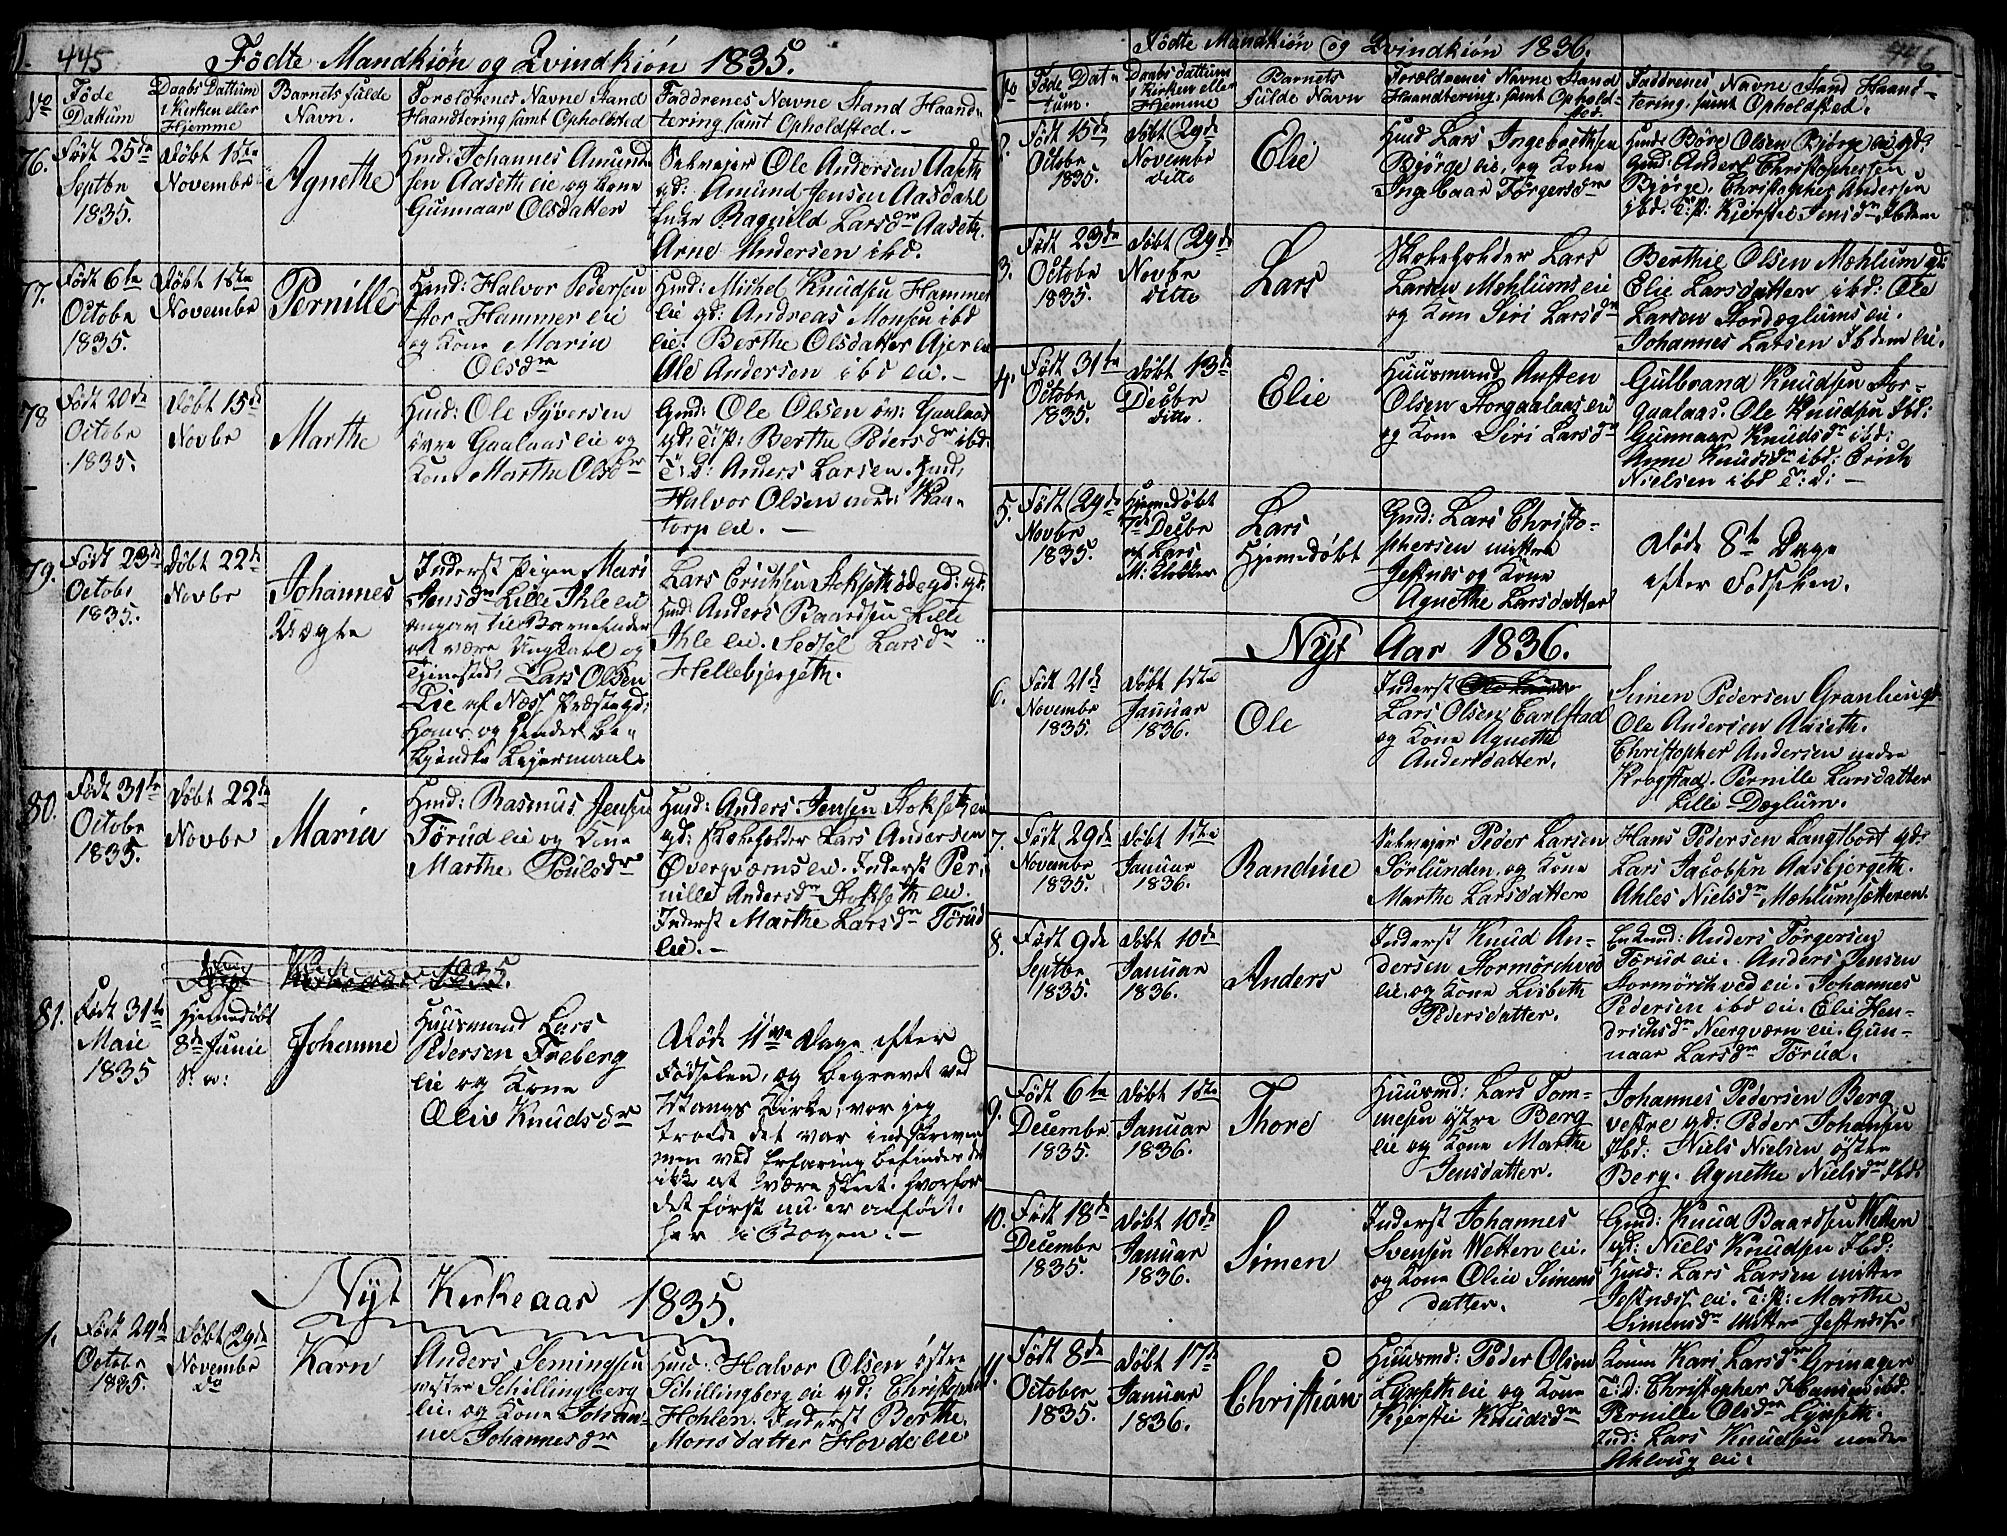 445
Födte Mandkiøn og Qvindkiøn 1835.
No
Føde Datum
Daabs Dattum i Kirken eller Hjemme
Barnets fulde Navn.
Forældrenes Navne Stand Haandtering samt Opholdsted
Faddrenes Navne Stand Haandtering samt Opholdsted.
76.
Født 25de
Septbr
1835.
Døbt 1ste
Novembr
Agnethe
Huusmd: Johannes Amund-
sen Aaseth eie og Kone
Gunnaar Olsdatter
Selveier Ole Andersen Aaseth
gd: Amund Jensen Aasdahl
Enke Ragnild Larsdr Aaseth.
Arne Andersen ibd.
77.
Født 6te
Octobr
1835.
Døbt 1ste
Novembr
Pernille
Huusmd: Halvor Pedersen
Stor Hammer eie
og Kone Maria
Olsdr
Huusmd: Michel Knudsen Hammer
eie gd: Andreas Monsen ibd
eie. Berthe Olsdatter Ajer eie
Ole Andersen ibd eie.
78
Født 20de
Octobr
1835.
Døbt 15de
Novbr
Marthe
Huusmd: Ole Syversen
øvre Gaalaas eie og
Kone Marthe Olsdr
Gmd: Ole Olsen øv: Gaalaas
gd: T:P: Berthe Pedersdr ibd
T: D: Anders Larsen. Huusmd:
Halvor Olsen nordr Kaa-
torp eie.
79.
Født 23de
Octobr
1835.
Døbt 22de
Novbr
Johannes
Uægte
Inderst Pigen Mari
Jensdr Lille Ihle eie
angav til Barnefader
at være Ungkarl og
Tjenested: Lars Olsen
Lie af Næss Præstegd:
Hans og hendes be-
kjendte Leiermaal
Lars Erichsen Stokseth ødegd: gd:
Huusmd: Anders Baardsen Lille
Ihle eie. Sedsel Larsdr
Hellebjergeth.
80.
Født 31te
Octobr
1835.
Døbt 22de
Novbr
Maria
Huusmd: Rasmus Jensen
Törud eie og Kone
Marthe Poulsdr
Huusmd: Anders Jensen Stokseth eie
gd: Skoleholder Lars Andersen
Overqværns eie. Inderst Per-
nille Andersdr Stokseth eie.
Inderst Marthe Larsdr Törud
eie.
81.
Født 31te
Maie
1835
Hjemmedøbt
8de Junie
S. A:
Johanne
Huusmand Lars
Pedersen Freberg
eie og Kone
Olia Knudsdr
Døde 11te Dage efter
Fødselen, og begravet ved
Vangs Kirke, vor jeg
troede det var indskreven
men ved Erfaring befindes det
ikke at være skeet. hvorfor
det först nu er anført
her i Bogen.
Nyt Kirkeaar 1835.
1.
Født 24de
Octobr
1835.
Døbt 29de
Novembr
do
Karn
Anders Semingsen
vestre Schillingberg
eie og Kone Johan-
ne Johannesdr
Huusmd: Halvor Olsen østre
Schillingberg eie gd: Christopher
Hohlen. Inderst Berthe
Monsdatter Hovde eie
446
Födte Mandkiön og Qvindkiön 1836.
No
Føde Dat-
tum.
Daabs Dattum
i Kirken eller
Hjemme
Barnets
fulde Navn
Forældrenes Navne Stand
Haandtering, samt Ophold-
sted.
Faddrenes Navne Stand Haand-
tering, samt Opholdsted.
2.
Født 15de
Octobr
1835.
Døbt 29de
Novembr
ditto
Elie
Huusmd Lars Ingebrethsen
Bjørge eie og Kone
Ingebaar Törgersdr
Huusmd: Böre Olsen Bjørge eie gd:
Gmd: Anders Christophersen
Bjørge. Christopher Andersen
ibd. T:P: Kjersti Jensdr Ibdem
3.
Født 23de
Octobr
1835.
Døbt 29de
Novbr
ditto
Lars
Skoleholder Lars
Larsen Mehlums eie
og Kone Siri Larsdr
Berthie Olsen Mæhlum gd:
Elie Larsdatter ibd: Ole
Larsen Stordæglums eie.
Johannes Larsen Ibdem eie.
4.
Født 31te
Octobr
1835.
Døbt 13de
Decbr
ditto.
Elie
Huusmand Austen
Olsen Storgaalaas eie
og Kone Siri Larsdr
Gulbrand Knudsen Stor-
gaalaas. Ole Knudsen Ibd:
Gunnaar Knudsdr ibd:
Anne Knudsdr ibd: Erich
Nielsen ibd T: D:
5.
Født 29de
Novbr
1835.
Hjemedøbt
7de Decbr
af Lars
M: Klokker
Lars
Hjemedøbt
Gmd: Lars Christo-
phersen mittre
Jestnes og Kone
Agnethe Larsdatter
Døde 8te Dage
efter Fødselen.
Nyt Aar 1836.
6.
Født 21de
Novembr
1835.
Døbt 1ste
Januar
1836.
Ole
Inderst
Lars Olsen Carlstad
og Kone Agnethe
Andersdatter.
Simen Pedersen Granlien gd:
Ole Andersen Aaseth.
Christopher Andersen nedre
Krogstad. Pernille Larsdatter
Lille Dæglum.
7.
Født 29de
Novembr
1835.
Døbt 1ste
Januar
1836.
Randine
Selveier Peder Larsen
Sørlunden, og Kone
Marthe Larsdatter
Hans Pedersen Langtbort gd:
Lars Jacobsen Aasbjergeth.
Ahles Nielsdr Mæhlumsætteren
8.
Født 9de
Septbr
1835.
Døbt 10de
Januar
1836.
Anders
Inderst Knud An-
dersen Stormörchved
eie, og Kone Lisbeth
Pedersdatter.
Enkemd: Anders Törgersen
Törud eie. Anders Jensen
Stormörchved eie. Johannes
Pedersen ibd eie. Elie Hen-
drichsdr Neerqværn eie. Gun-
naar Larsdr Törud.
9.
Født 6te
Decembr
1835.
Døbt 1ste
Januar
1836.
Thore
Huusmd: Lars Tom-
mesen østre Berg
eie og Kone Marthe
Jensdatter.
Johannes Pedersen Berg
vestre gd: Peder Johansen
Ibd: Niels Nielsen østre
Berg. Agnethe Nielsdr Ibd:
10.
Født 18de
Decembr
1835.
Døbt 10de
Januar
1836.
Simen
Inderst Johannes
Svensen Wetten eie.
og Kone Olia Simens
datter.
Gmd: Knud Baardsen Wetten
gd: Niels Knudsen Ibd:
Huusmd: Lars Larsen mittre
Jestnæss eie. T:P: Marthe
Simensdr mittre Jestnæss.
11.
Født 8de
October
1835.
Døbt 17de
Januar
1836.
Christian
Huusmd: Peder Olsen
Lynseth eie og Kone
Kjerstie Knudsdr
Konen Kari Larsdr Grimager
T:D: Christopher Hansen ibd.
Pernille Olsdr Lynseth.
Ind: Lars Knudsen nedre
Ahlvug eie.